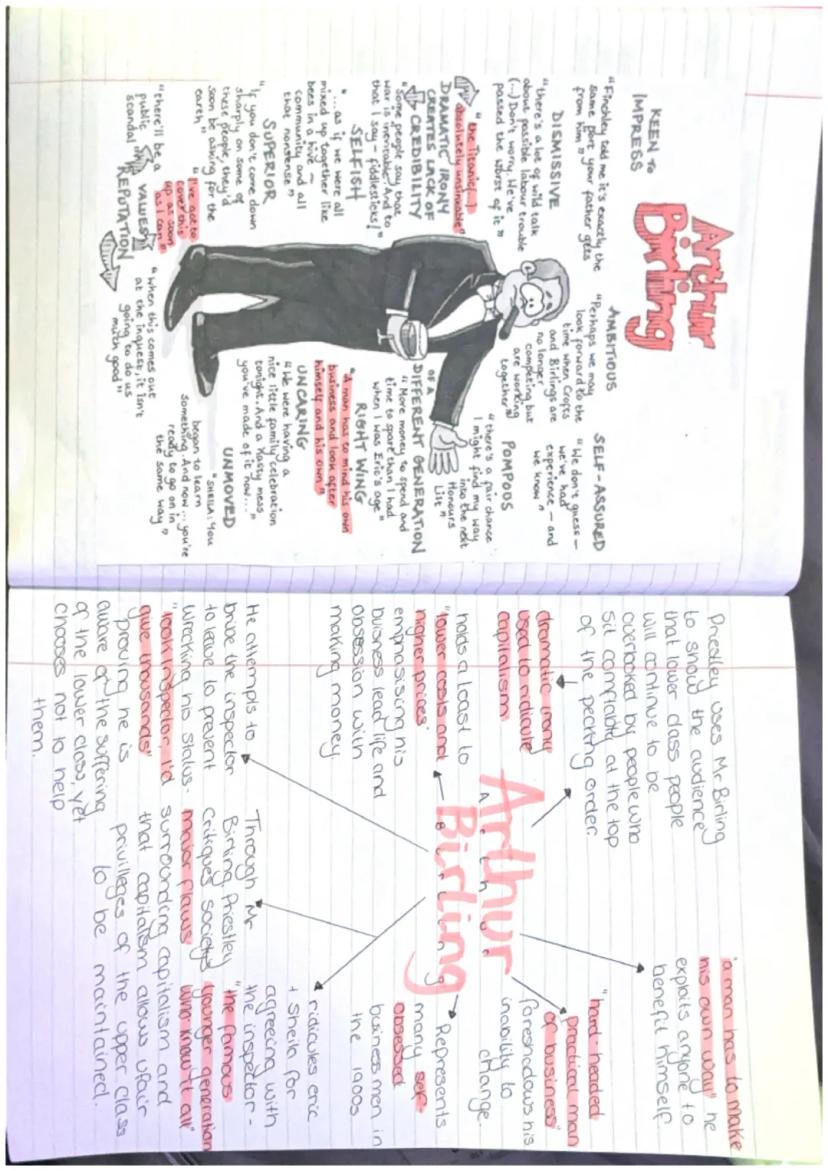 Arthur
Birling
KEEN TO
IMPRESS
"Finchley told me it's exactly the
same port your father gets
from him"
DISMISSIVE
"there's a lot of wild talk
about possible labour trouble
(...) Don't worry. We've
passed the worst of it"
"the Titanic(...)
absolutely unsinkable"
DRAMATIC IRONY
CREATES LACK OF
CREDIBILITY
"Some people say that
war is inevitable. And to
that I say - fiddlesticks!"
SELFISH
"...as if we were all
mixed up together like
bees in a hive -
community and all
that nonsense"
SUPERIOR
"If you don't come down
sharply on some of
these people, they'd
soon be asking for the
earth"
"I've got to
cover this
up as soon
as I can"
"there'll be a
public
scandal"
VALUES
REPUTATION
"when this comes out
at the inquest, it isn't
going to do us
much good"
AMBITIOUS
"Perhaps we may
look forward to the
time when Crofts
and Birlings are
no longer
competing but
are working
together"
SELF-ASSURED
"We don't guess -
we've had
experience - and
we know"
POMPOUS
"there's a fair chance
I might find my way
into the next
Honours
List"
OF A
DIFFERENT GENERATION
"More money to spend and
time to spare than I had
when I was Eric's age"
RIGHT WING
"A man has to mind his own
business and look after
himself and his own"
UNCARING
"We were having a
nice little family celebration
tonight. And a nasty mess
you've made of it now..."
UNMOVED
"SHEILA: You
began to learn
something. And now... you're
ready to go on in
the same way"
Priestley uses Mr Birling
to show the audience
that lower class people
will continue to be
overlooked by people who
sit comfidably at the top
of the pecking order.
dramatic irony
used to ridicule
capitalism
holds a toast to
"lower costs and
higher prices"
emphasising his
buisness lead life and
obsession with
making money
He attempts to
bribe the inspector
to leave to prevent
wrecking his status -
"look inspector I'd
give thousands"
proving he is
aware of the suffering
of the lower class, yet
chooses not to help
them.
Arthur
Birling
Arthur
Birling
"a man has to make
his own way" he
exploits anyone to
benefit himself
"hard-headed
practical man
of business"
foreshadows his
inability to
change.
Represents
many self-
obsessed
business men in
the 1900s
ridicules eric
+ sheila for
agreeing with
the inspector -
"the famous
younger generation
who know it all"
Through Mr
Birling, Priestley
critiques societys
major flaws
surrounding capitalism and
that capitalism allows ufair
privilleges of the upper class
to be maintained.